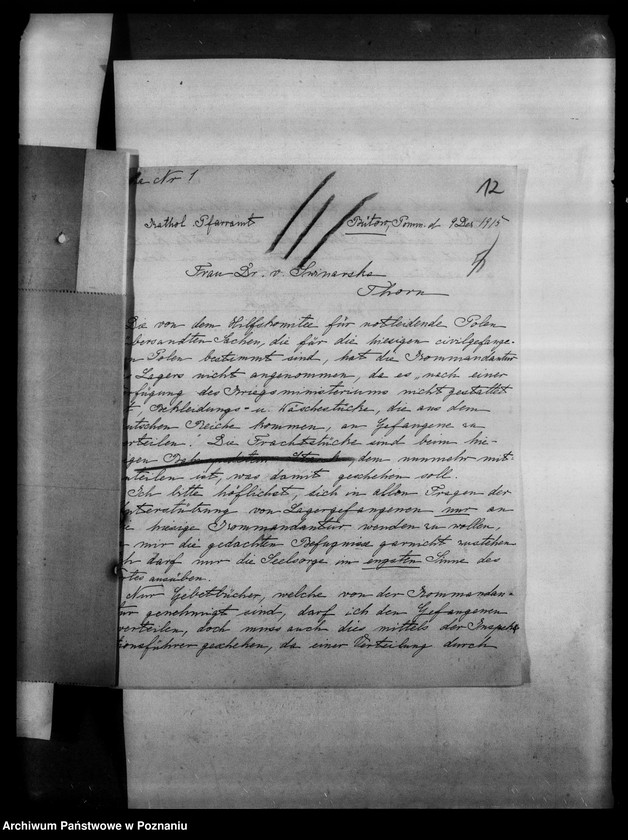 Nr 1
12
Kathol. Pfarramt
Bütow, Pomm. d 9 Dez 1915
Frau Dr. v. Swinarska
Thorn
Die von dem Hilfskomitee für notleidende Polen
übersandten Sachen, die für die hiesigen civilgefange-
n Polen bestimmt sind, hat die Kommandantur
Lagers nicht angenommen, da es "nach einer
rfügung des Kriegsministeriums nicht gestattet
t, Bekleidungs- u. Wäschestücke, die aus dem
utschen Reiche kommen, an Gefangene zu
erteilen." Die Frachtstücke sind beim hie-
gen dem nunmehr mit
uteilen ist, was damit geschehen soll.
Ich bitte höflichst, sich in allen Fragen der
nterstützung von Lagergefangenen nur an
e hiesige Kommandantur wenden zu wollen,
mir die gedachten Befugnisse garnicht zustehen
h darf nur die Seelsorge im engsten Sinne des
tes ausüben.
Nur Gebetbücher, welche von der Kommandan-
ur genehmigt sind, darf ich den Gefangenen
verteilen, doch muss auch dies mittels der Inspek-
ionsführer geschehen, da einer Verteilung durch
Archiwum Państwowe w Poznaniu